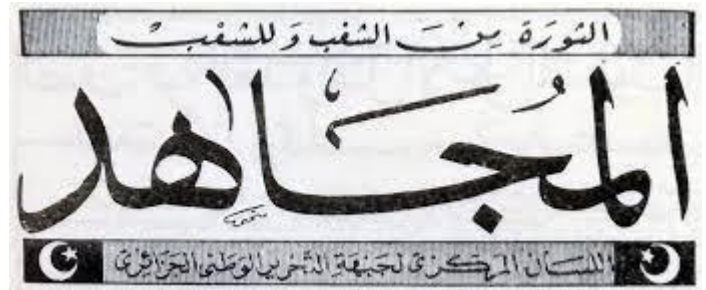 الثورَة مِنَ الشعْب وَللشعْبْ
المُجَاهد
اللسَان المركزى لجَبهة التحرير الوَطنى الجَزائرى